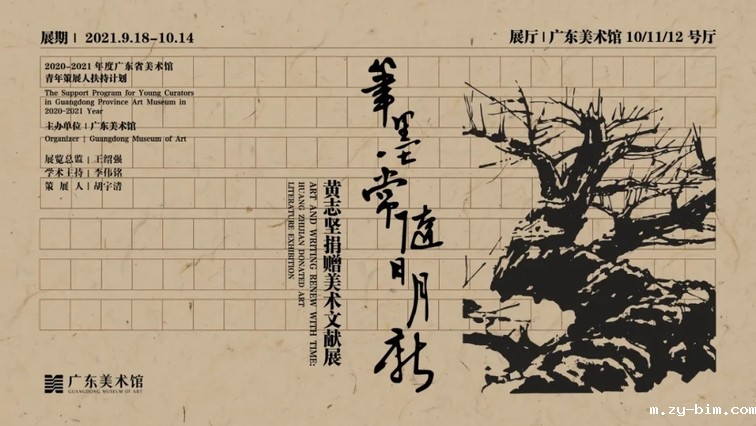 展期 | 2021.9.18-10.14
展厅 | 广东美术馆 10/11/12 号厅
2020-2021 年度广东省美术馆
青年策展人扶持计划
The Support Program for Young Curators
in Guangdong Province Art Museum in
2020-2021 Year
主办单位 | 广东美术馆
Organizer | Guangdong Museum of Art
展览总监 | 王绍强
学术主持 | 李伟铭
策 展 人 | 胡宇清
笔墨常随日月新
黄志坚捐赠美术文献展
ART AND WRITING RENEW WITH TIME:
HUANG ZHIJIAN DONATED ART
LITERATURE EXHIBITION
广东美术馆
GUANGDONG MUSEUM OF ART
m.zy-bim.com